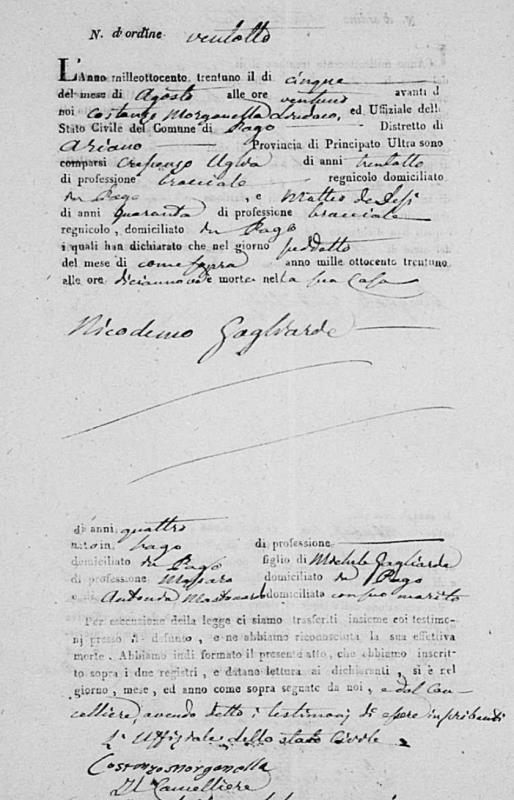 N. d'ordine ventotto
L'Anno milleottocento trentuno il di cinque
del mese di Agosto alle ore ventuno avanti d
noi Costanzo Morganella Sindaco, ed Uffiziale dell
Stato Civile del Comune di Pago Distretto di
Ariano Provincia di Principato Ultra sono
comparsi Crescenzo Uglia di anni trentotto
di professione bracciale regnicolo domiciliato
in Pago, e Matteo de
di anni quaranta di professione bracciale
regnicolo, domiciliato in Pago
i quali han dichiarato che nel giorno suddetto
del mese di come sopra anno mille ottocento trentuno
alle ore diciannove è morto nella sua Casa
Nicodemo Gagliarde
di anni quattro
nato in Pago di professione
domiciliato in Pago figlio di Michele Gagliarde
di professione Massaro domiciliato in Pago
e di Antonia domiciliato con suo marito
Per esecuzione della legge ci siamo trasferiti insieme coi testimo-
nj presso il defunto, e ne abbiamo riconosciuta la sua effettiva
morte. Abbiamo indi formato il presente atto, che abbiamo inscrit-
to sopra i due registri, e datane lettura ai dichiaranti, si è nel
giorno, mese, ed anno come sopra segnato da noi, e dal Can-
celliere, avendo detto i testimonj di essere inscribendi
L'Uffiziale dello stato Civile
Costanzo Morganella
Il Cancelliere